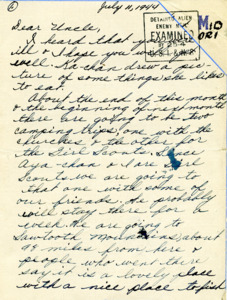 July 11, 1944
DETAINED ALIEN
ENEMY MAIL
EXAMINED
Dear Uncle,
I heard that you
ill & I hope you
well. Ka-chan drew a pic-
ture of some things she likes
to eat.
About the end of this month
& the beginning of next month
there are going to be two
camping trips, one with the
churches & the other for
the Girl Scouts.
ya-chan & I are Girl
Scouts we are going to
that one with some of
our friends. We probably
will stay there for a
week. We are going to
Sawtooth Mountains about
99 miles from here &
people who went there
say it is a lovely place
with a nice place to fish